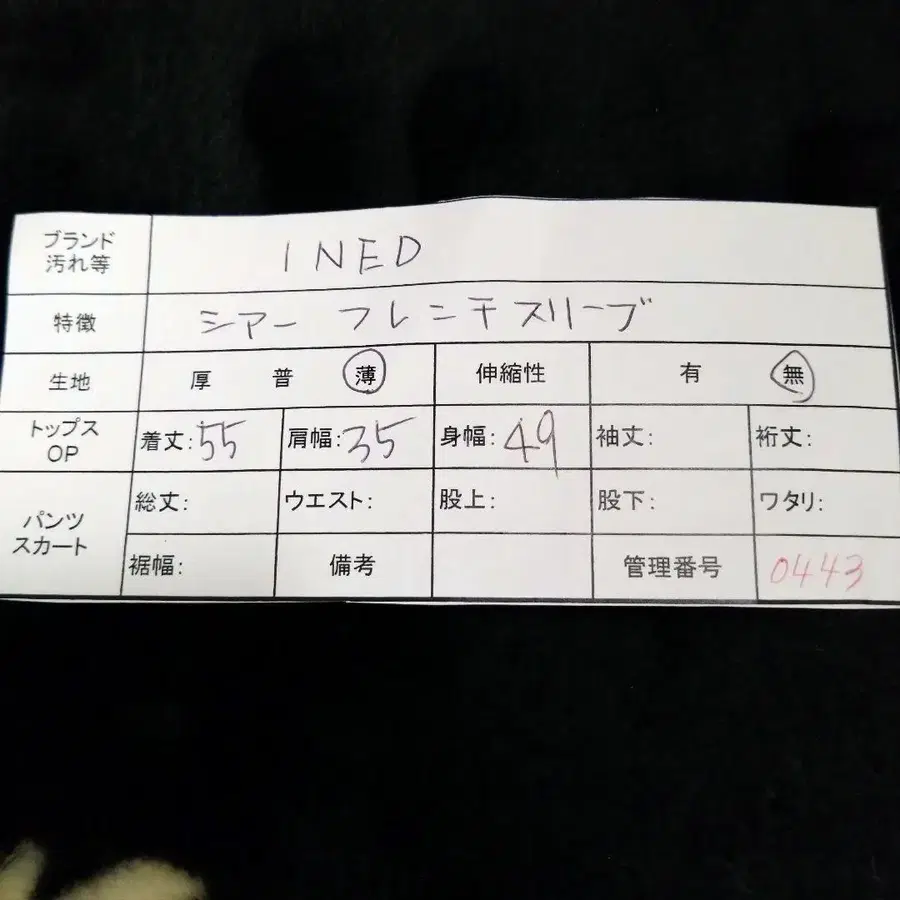 ブランド
汚れ等
INED
特徴
シアー フレンチスリーブ
生地 厚 普 薄 伸縮性 有 無
トップス
OP
着丈:55 肩幅:35 身幅:49 袖丈: 裄丈:
パンツ
スカート
総丈: ウエスト: 股上: 股下: ワタリ:
裾幅: 備考 管理番号 0443